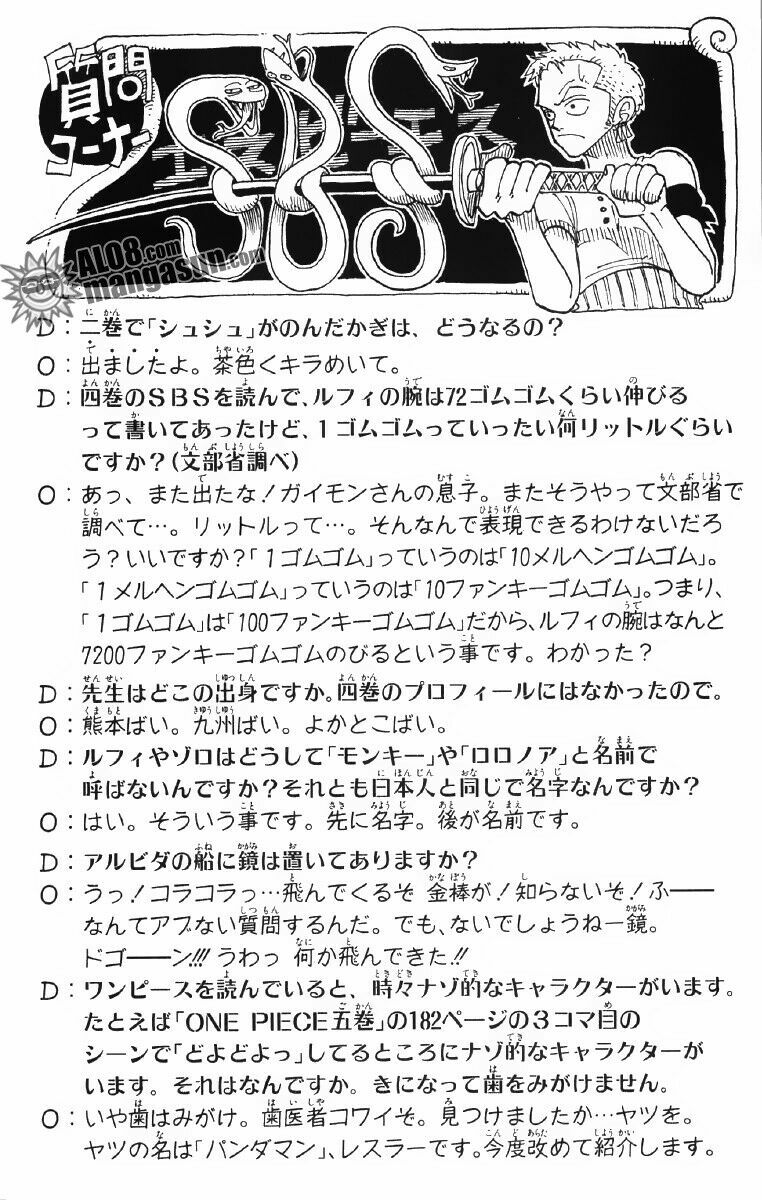 質問
コーナー
エスビーエス
SBS
AL08.com
mangasun.com
D：二巻で「シュシュ」がのんだかぎは、どうなるの？
O：出ましたよ。茶色くキラめいて。
D：四巻のSBSを読んで、ルフィの腕は72ゴムゴムくらい伸びる
って書いてあったけど、1ゴムゴムっていったい何リットルぐらい
ですか？(文部省調べ)
O：あっ、また出たな！ガイモンさんの息子。またそうやって文部省で
調べて…。リットルって…。そんなんで表現できるわけないだろ
う？いいですか？「1ゴムゴム」っていうのは「10メルヘンゴムゴム」。
「1メルヘンゴムゴム」っていうのは「10ファンキーゴムゴム」。つまり、
「1ゴムゴム」は「100ファンキーゴムゴム」だから、ルフィの腕はなんと
7200ファンキーゴムゴムのびるという事です。わかった？
D：先生はどこの出身ですか。四巻のプロフィールにはなかったので。
O：熊本ばい。九州ばい。よかとこばい。
D：ルフィやゾロはどうして「モンキー」や「ロロノア」と名前で
呼ばないんですか？それとも日本人と同じで名字なんですか？
O：はい。そういう事です。先に名字。後が名前です。
D：アルビダの船に鏡は置いてありますか？
O：うっ！コラコラっ…飛んでくるぞ 金棒が！知らないぞ！ふ——
なんてアブない質問するんだ。でも、ないでしょうねー鏡。
ドゴ——ン!!! うわっ 何か飛んできた!!
D：ワンピースを読んでいると、時々ナゾ的なキャラクターがいます。
たとえば「ONE PIECE五巻」の182ページの3コマ目の
シーンで「どよどよっ」してるところにナゾ的なキャラクターが
います。それはなんですか。きになって歯をみがけません。
O：いや歯はみがけ。歯医者コワイぞ。見つけましたか…ヤツを。
ヤツの名は「パンダマン」、レスラーです。今度改めて紹介します。